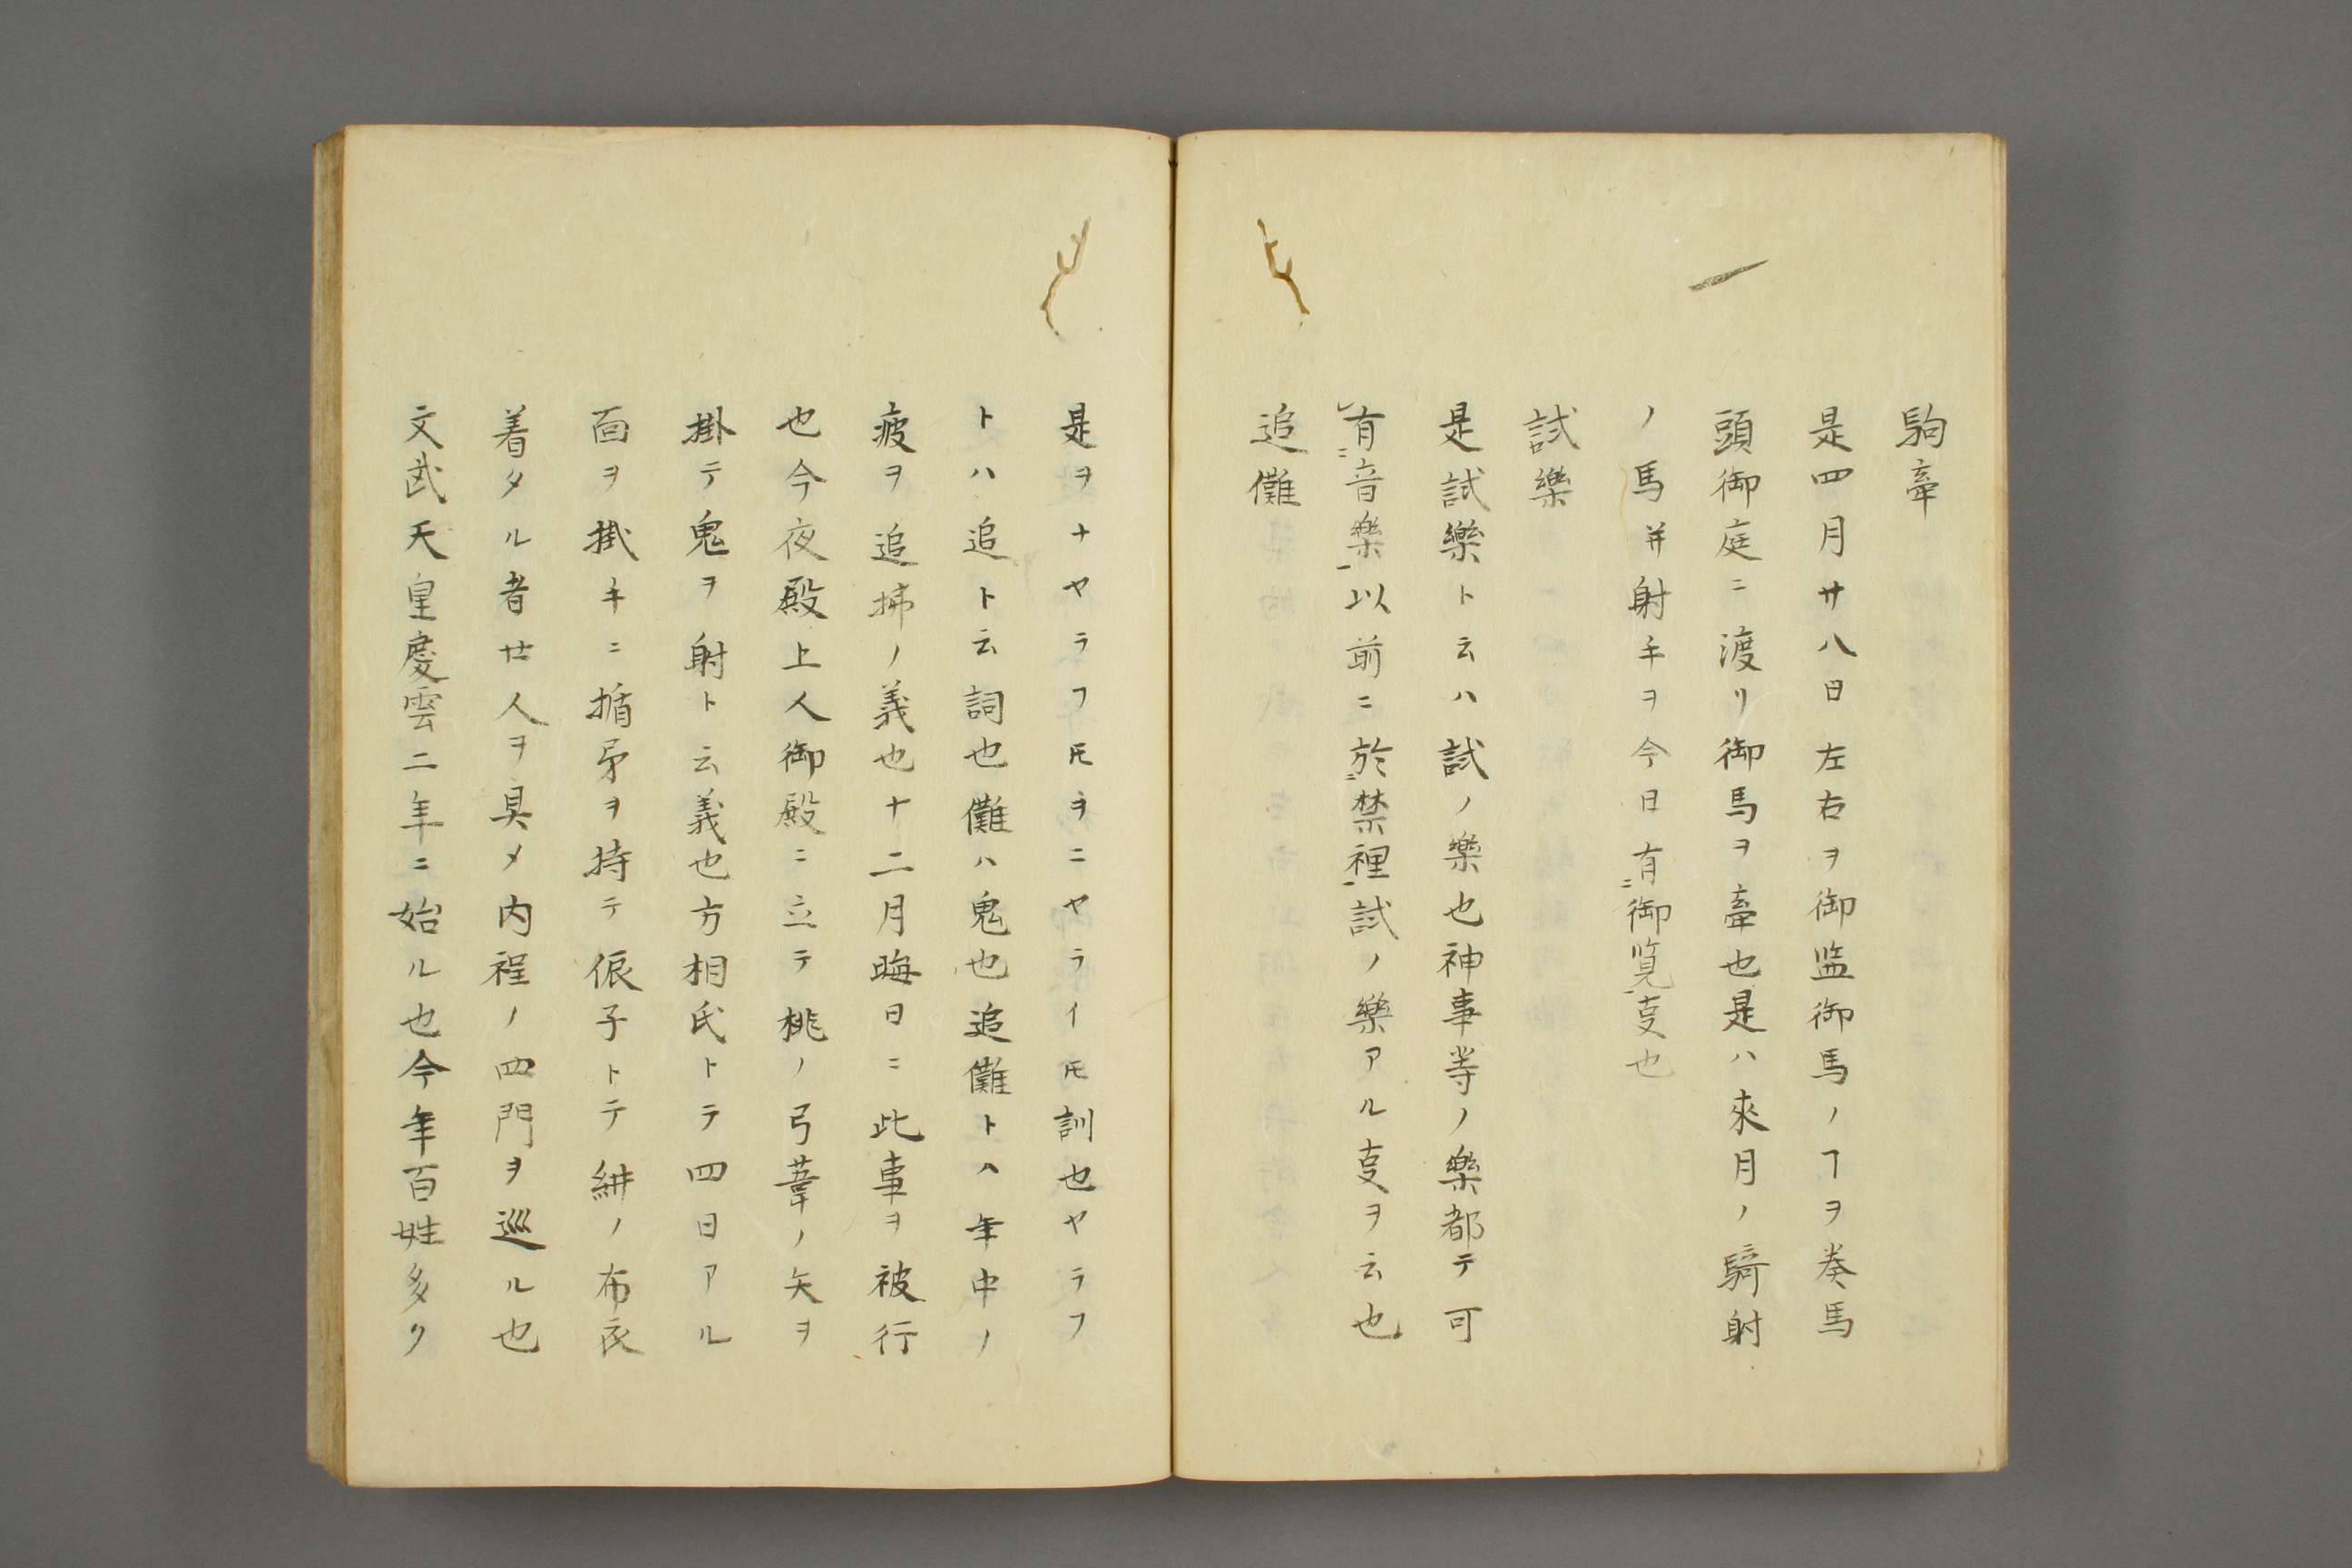 駒牽
是四月廿八日左右ヲ御监御馬ノヿヲ奏馬
頭御庭ニ渡リ御馬ヲ牽也是ハ來月ノ騎射
ノ馬并射手ヲ今日有ニ御覧一叓也
試樂
是試樂ト云ハ試ノ樂也神事等ノ樂都テ可
レ有ニ音樂一以前ニ於ニ禁裡一試ノ樂アル叓ヲ云也
追儺
是ヲナヤラフ𪜈ヲニヤライ𪜈訓也ヤラフ
トハ追ト云詞也儺ハ鬼也追儺トハ年中ノ
疲ヲ追拂ノ義也十二月晦日ニ此事ヲ被行
也今夜殿上人御殿ニ立テ桃ノ弓葦ノ矢ヲ
掛テ鬼ヲ射ト云義也方相氏トテ四目アル
面ヲ掛手ニ楯矛ヲ持テ侲子トテ紺ノ布衣
着タル者廿人ヲ具メ内裡ノ四門ヲ巡ル也
文武天皇慶雲二年ニ始ル也今年百姓多ク